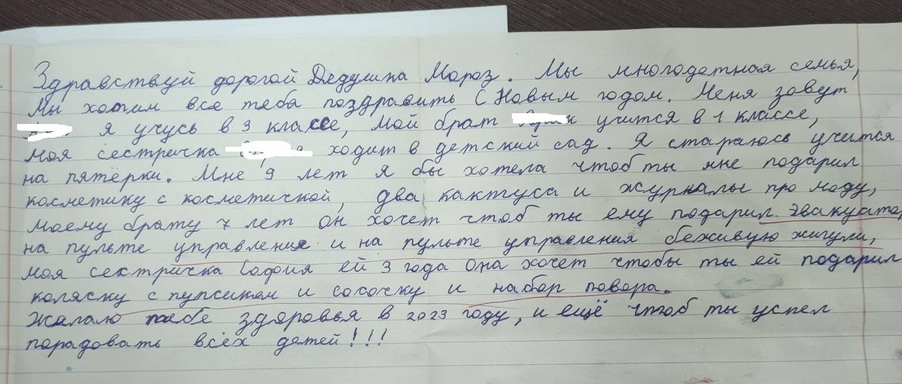 Здравствуй дорогой Дедушка Мороз. Мы многодетная семья,
Мы хотим все тебя поздравить С Новым годом. Меня зовут
я учусь в 3 классе, мой брат учится в 1 классе,
моя сестричка ходит в детский сад. Я стараюсь учится
на пятёрки. Мне 9 лет я бы хотела чтоб ты мне подарил
косметику с косметичкой, два кактуса и журналы про моду,
моему брату 7 лет он хочет чтоб ты ему подарил эвакуато,
на пульте управления и на пульте управления беживую жигули,
моя сестричка София ей 3 года она хочет чтобы ты ей подарил
коляску с пупсиком и сосочку и набор повора.
Желаю тебе здоровья в 2023 году, и ещё чтоб ты успел
порадовать всех детей!!!